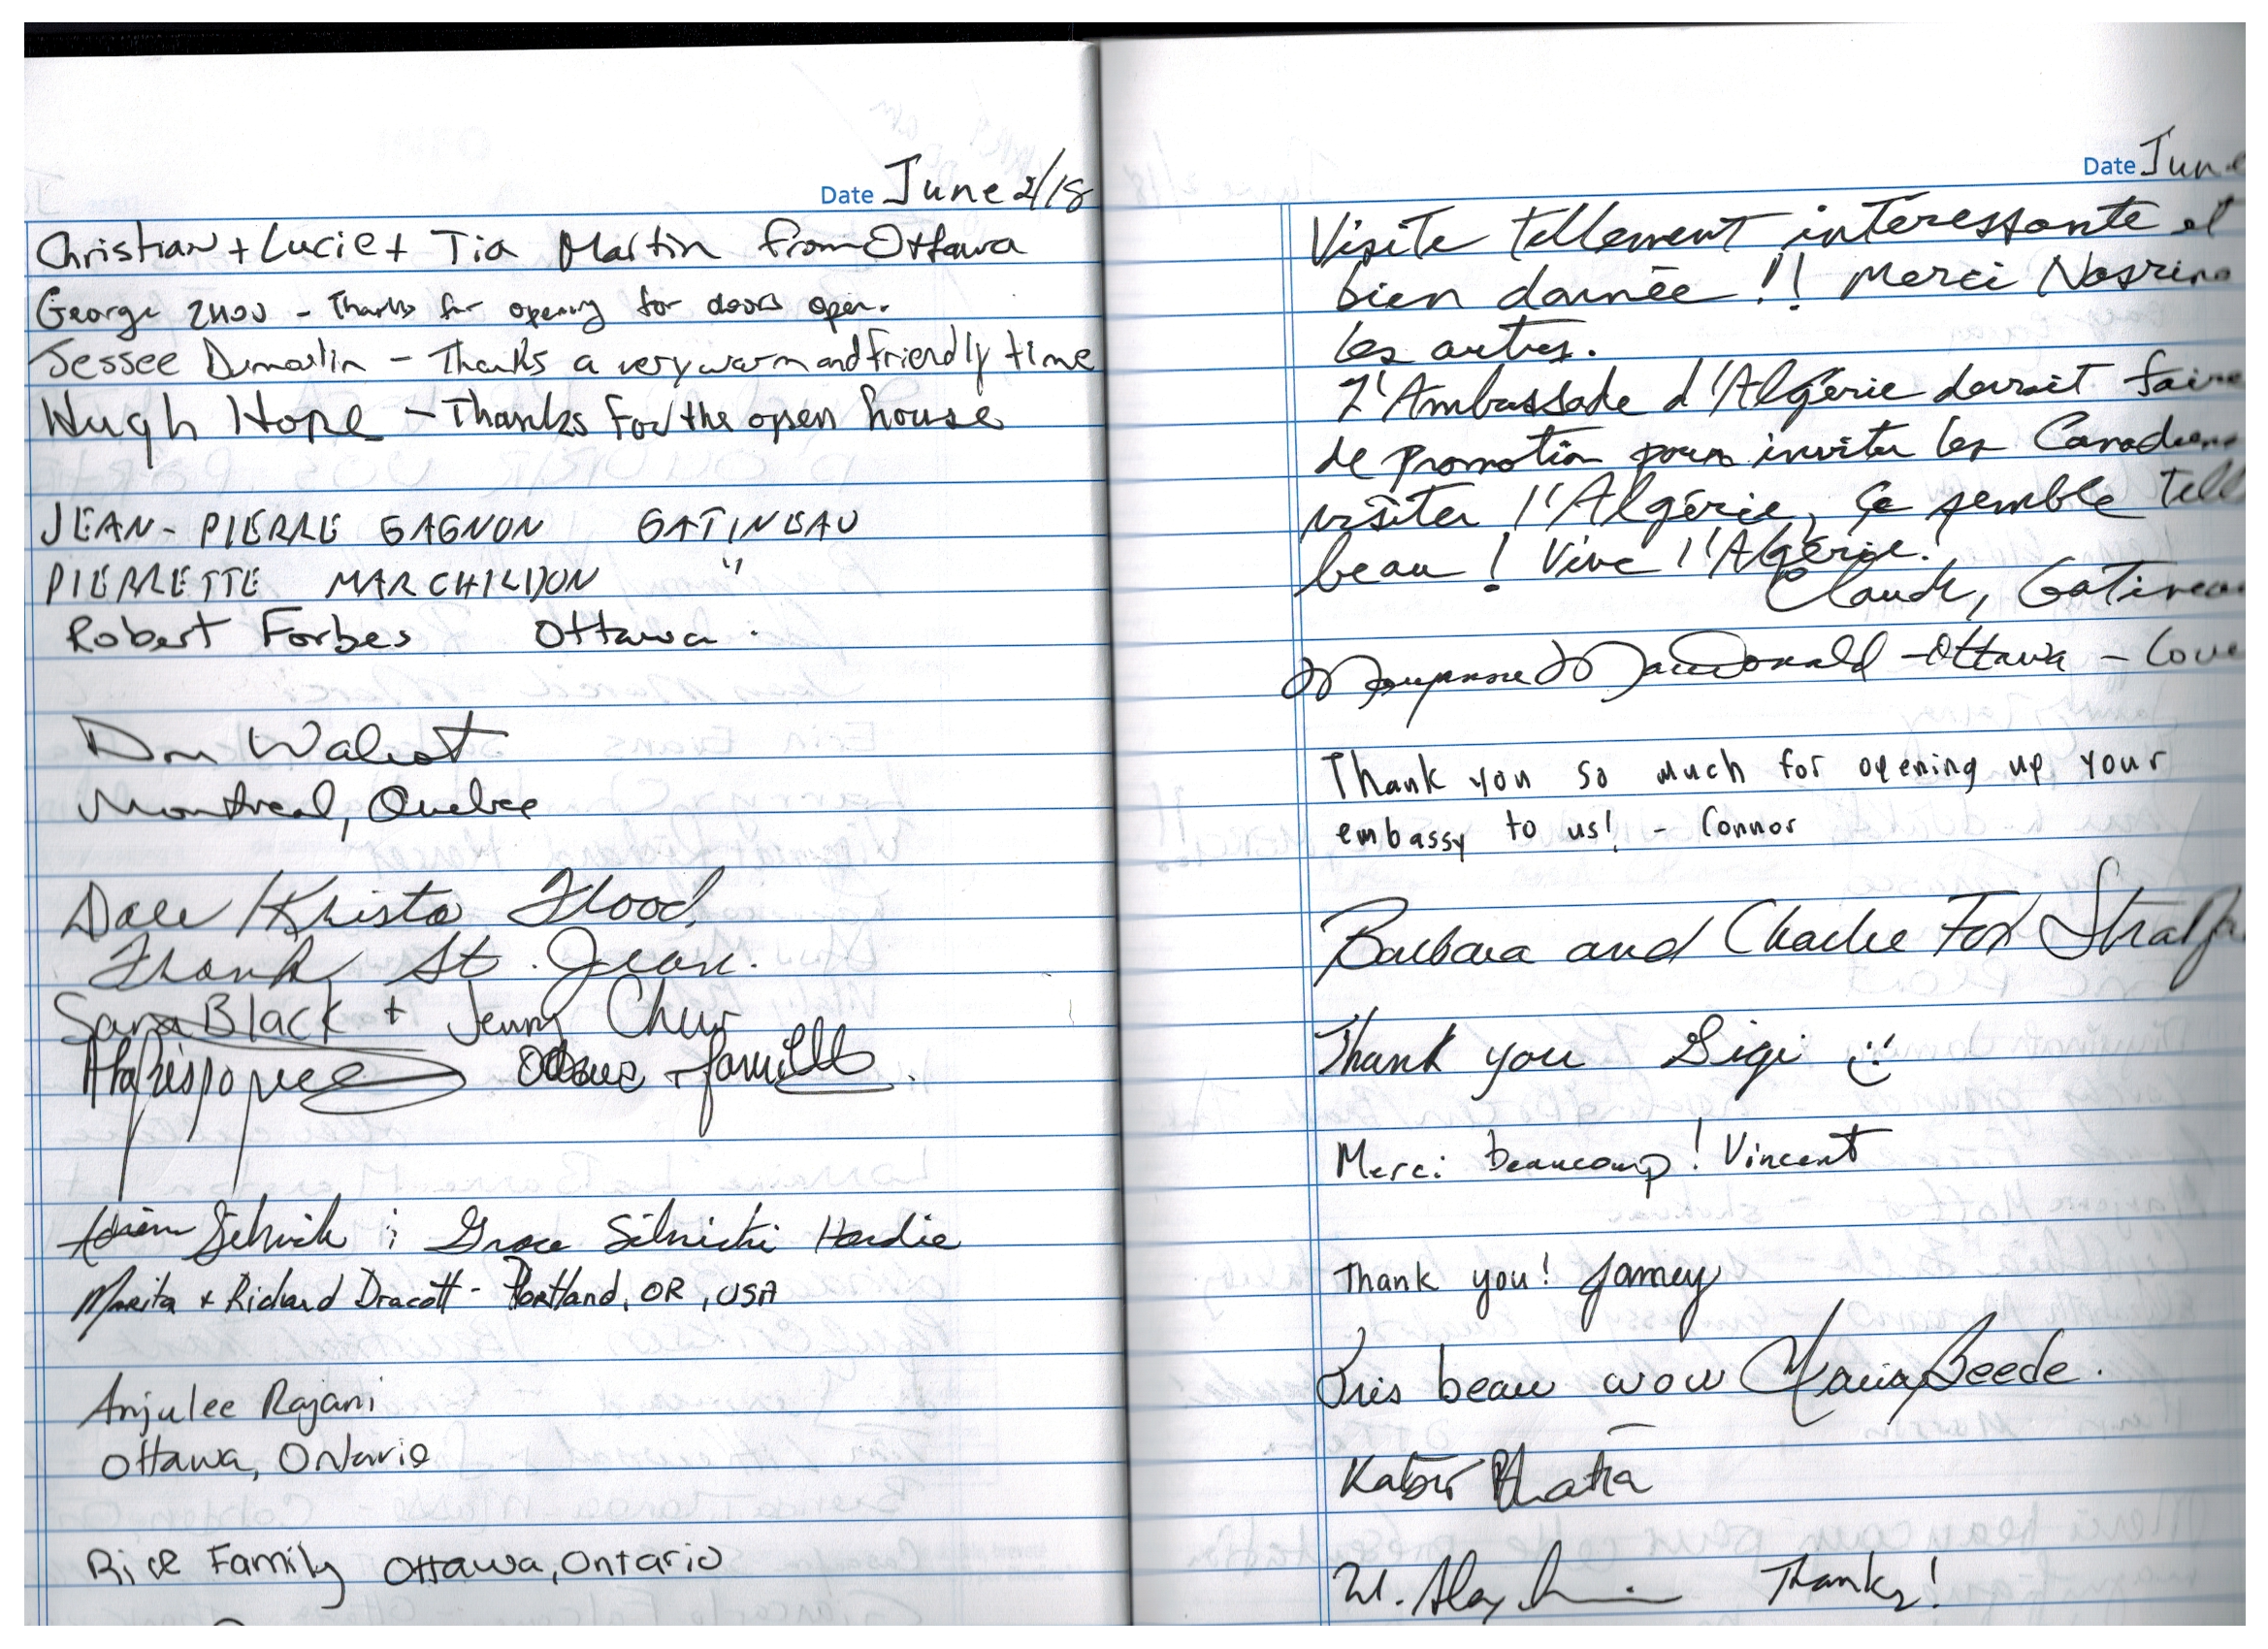 Date June 2/18
Christian + Lucie + Tia Martin from Ottawa
George Zhou - Thanks for opening for doors open.
Jessee Dumoulin - Thanks a very warm and friendly time
Hugh Hope - Thanks for the open house
JEAN-PIERRE GAGNON GATINEAU
PIERRETTE MARCHILDON "
Robert Forbes Ottawa.
Don
Montreal, Quebec
Dale / Krista Flood,
Frank St. Jean.
Sara Black + Jenny
famille.
Grace Silnicki Hardie
Marita + Richard Dracott - Portland, OR, USA
Anjulee Rajani
Ottawa, Ontario
Rice Family Ottawa, Ontario
Date June
Visite tellement intéressante et
bien donnée!! Merci
les autres.
L'Ambassade d'Algérie devrait faire
de promotion pour inviter les Canadiens
visiter l'Algérie, ça semble tell
beau! Vive l'Algérie!
Claude, Gatineau
MacDonald - Ottawa - Love
Thank you so much for opening up your
embassy to us! - Connor
Barbara and Charlie Fox Stratfo
Thank you Sigi :)
Merci beaucoup! Vincent
Thank you! Jamey
Très beau wow Beede.
Kabir Bhatia
Thanks!